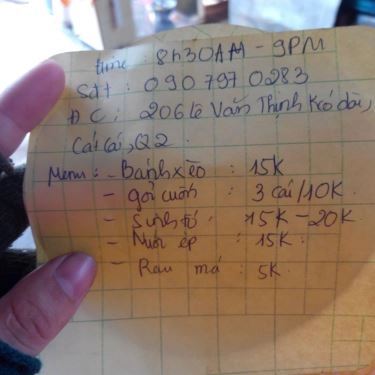 time : 8h30AM - 9PM
Sđt : 090 797 0283
ĐC : 206 Lê Văn Thịnh kéo dài,
Cát Lái, Q2
Menu : - Bánh xèo : 15K
- gỏi cuốn : 3 cái/10K
- Sinh tố : 15K - 20K
- Nước ép : 15K.
- Rau má : 5K.